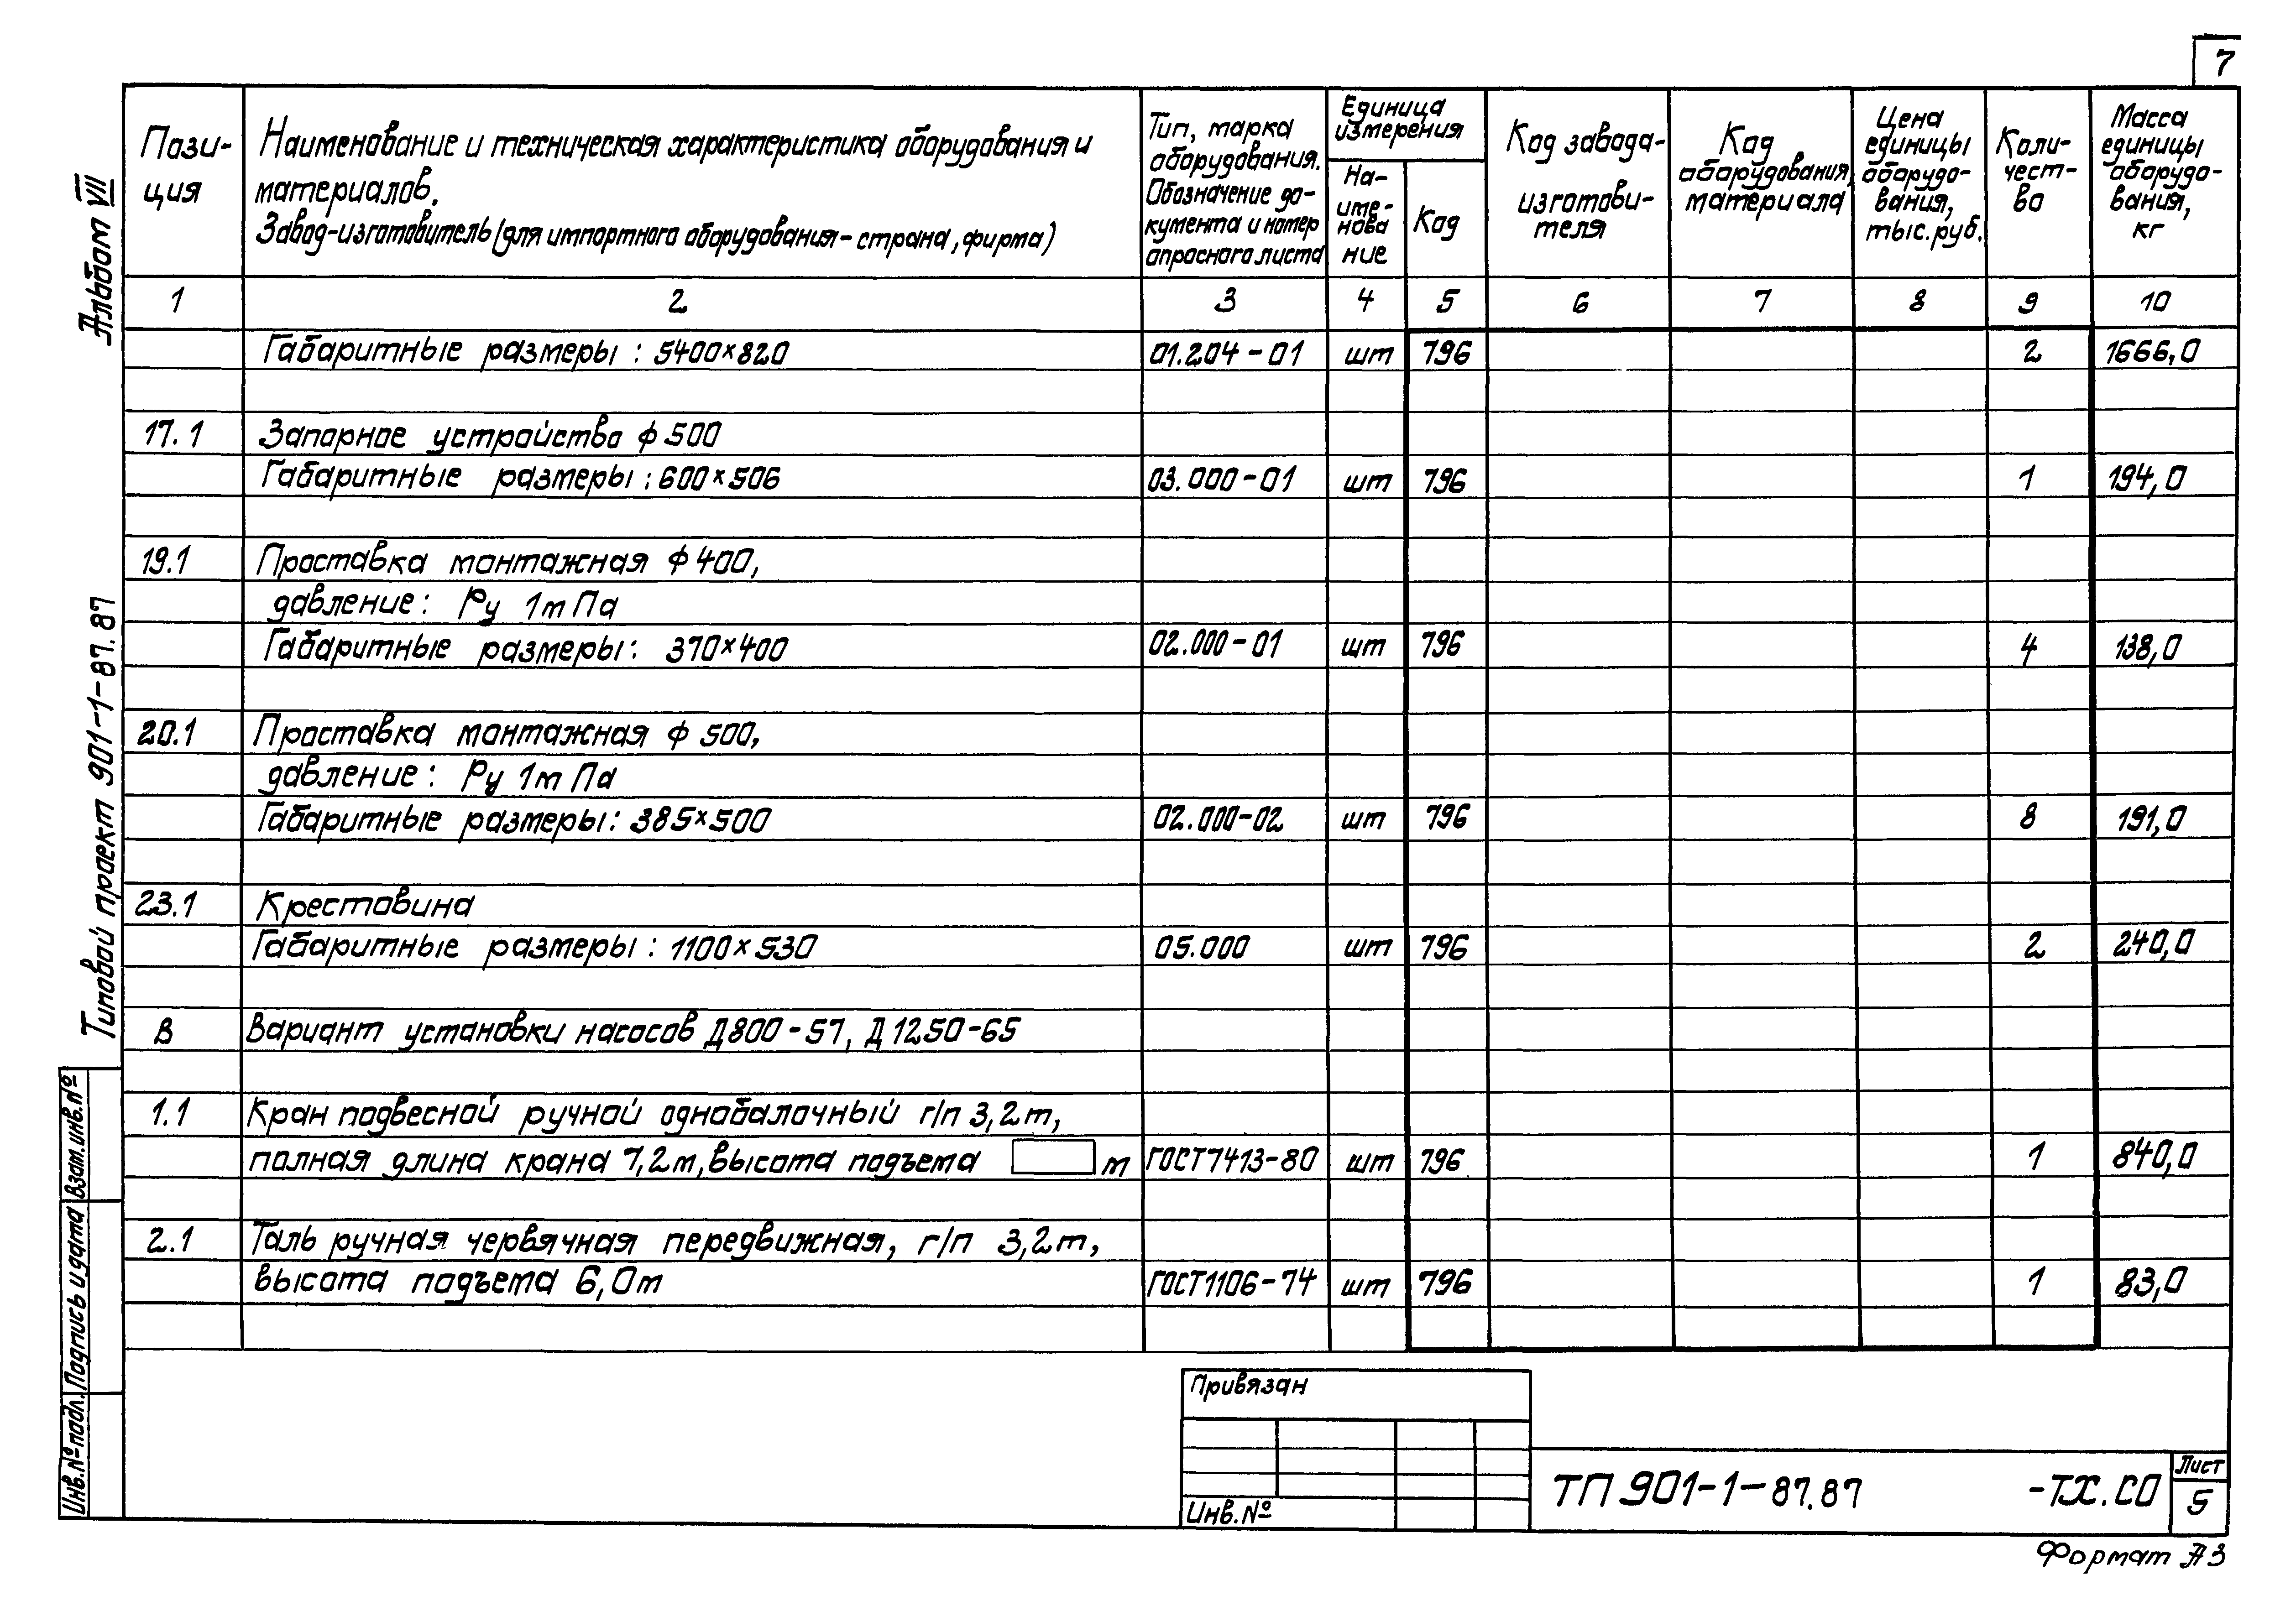 7
Пози-
ция
Наименование и техническая характеристика оборудования и
материалов.
Завод-изготовитель (для импортного оборудования-страна, фирма)
Тип, марка
оборудования.
Обозначение до-
кумента и номер
опросного листа
Единица
измерения
На-
име-
нова
ние
Код
Код завода-
изготови-
теля
Код
оборудования,
материала
Цена
единицы
оборудо-
вания,
тыс. руб.
Коли-
чест-
во
Масса
единицы
оборудо-
вания,
кг
1 2 3 4 5 6 7 8 9 10
Габаритные размеры : 5400×820 01.204-01 шт 796 2 1666,0
17.1 Запорное устройство ф 500
Габаритные размеры : 600×506 03.000-01 шт 796 1 194,0
19.1 Проставка монтажная ф 400,
давление : Ру 1м Па
Габаритные размеры : 370×400 02.000-01 шт 796 4 138,0
20.1 Проставка монтажная ф 500,
давление : Ру 1м Па
Габаритные размеры : 385×500 02.000-02 шт 796 8 191,0
23.1 Крестовина
Габаритные размеры : 1100×530 05.000 шт 796 2 240,0
В Вариант установки насосов Д800-57, Д1250-65
1.1 Кран подвесной ручной однобалочный г/п 3,2т,
полная длина крана 7,2м, высота подъема м ГОСТ7413-80 шт 796 1 840,0
2.1 Таль ручная червячная передвижная, г/п 3,2т,
высота подъема 6,0м ГОСТ1106-74 шт 796 1 83,0
Альбом VII
Типовой проект 901-1-87.87
Взам.инв.№
Подпись и дата
Инв.№подл.
Привязан
Инв.№
ТП 901-1-87.87 -ТХ.СО
Лист
5
Формат А3